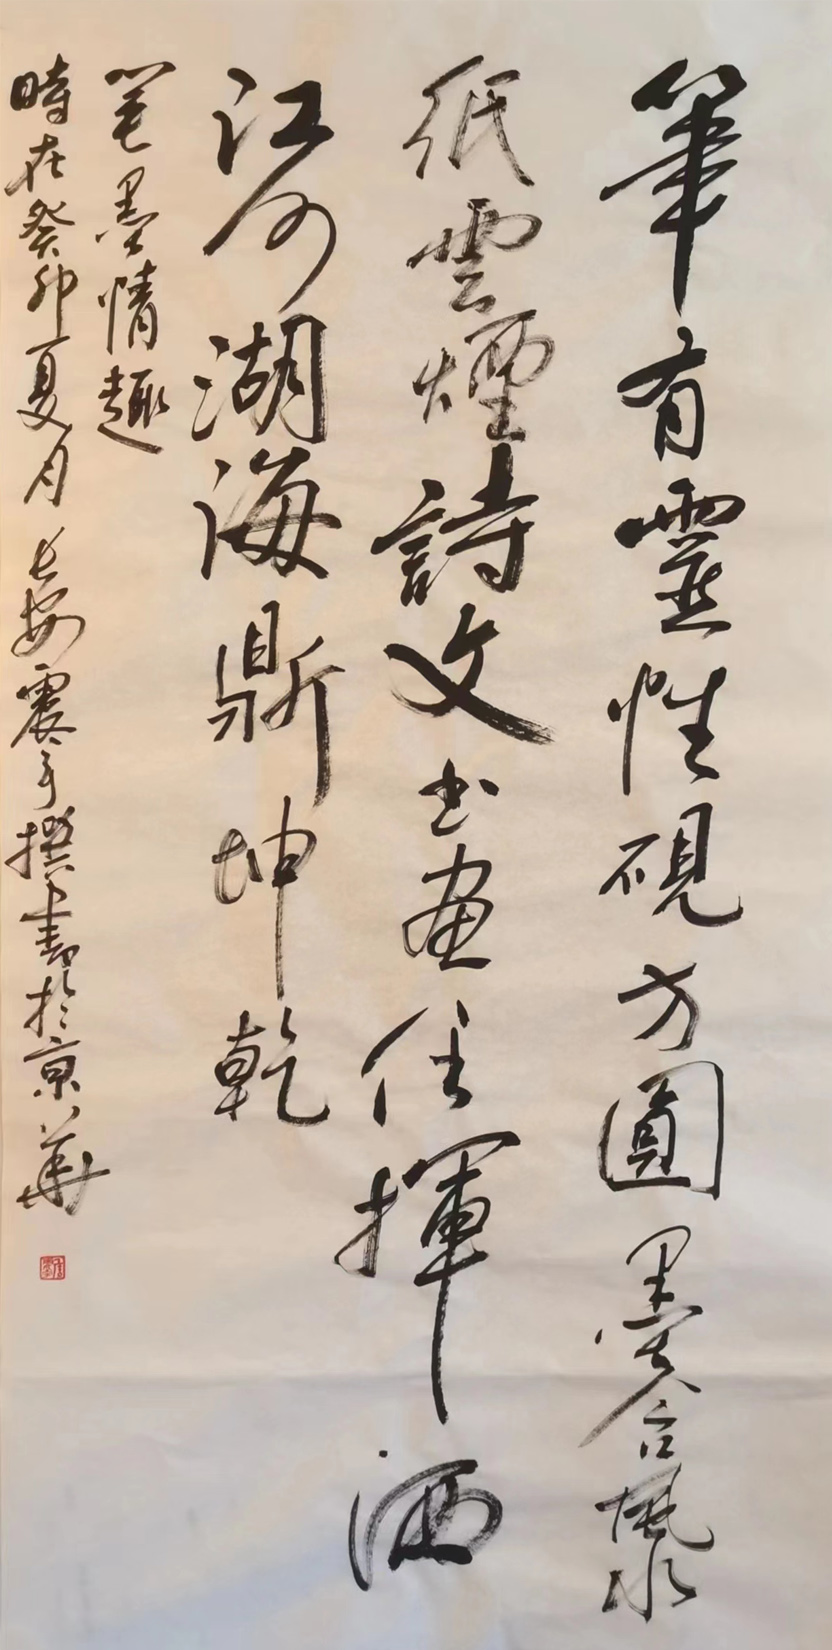 筆有靈性硯方圓墨含風水
紙雲煙詩文书畫任揮洒
江河湖海鼎坤乾
笔墨情趣
時在癸卯夏月長安震手撰書於京華